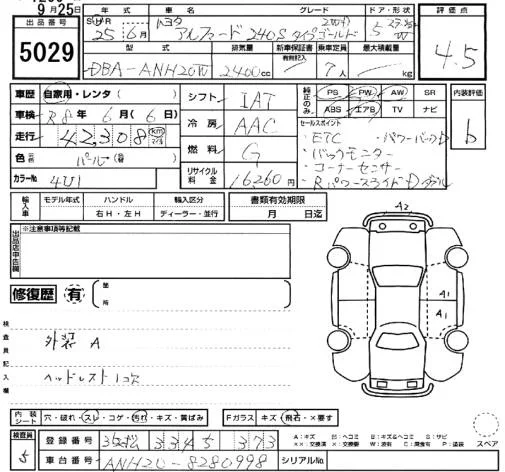 9月25日
出品番号
5029
年式 車名 グレード ドア・形状
25年6月 トヨタ アルファード 240S タイプゴールド 5 W
型式 排気量 新車保証書 乗車定員 最大積載量
有無記入
DBA-ANH20W 2400cc 7人 kg
評価点
4.5
車歴 自家用・レンタ
車検 R8年6月(6日)
走行 42,308 km
色 パール
カラーNo
シフト IAT
冷房 AAC
燃料 G
リサイクル料金 16260円
純正のみ
PS PW AW SR
ABS エアB TV ナビ
セールスポイント
・ETC ・パワーバックD
・バックモニター
・コーナーセンサー
・Rパワースライド
内装評価
b
輸入車 モデル年式 ハンドル 輸入区分 書類有効期限
右H・左H ディーラー・並行 月 日迄
出品店申告欄
※注意事項等記載
修復歴 有 箇所
検査員記入欄
外装 A
ヘッドレスト1コ欠
A2
A1
A1
内装シート 穴・破れ・スレ・コゲ・汚れ・キズ・黄ばみ Fガラス キズ・飛石・×要す
検査員
5
登録番号 3345 373
車台番号 ANH20-8280998 シリアルNo.
A:キズ
スペア